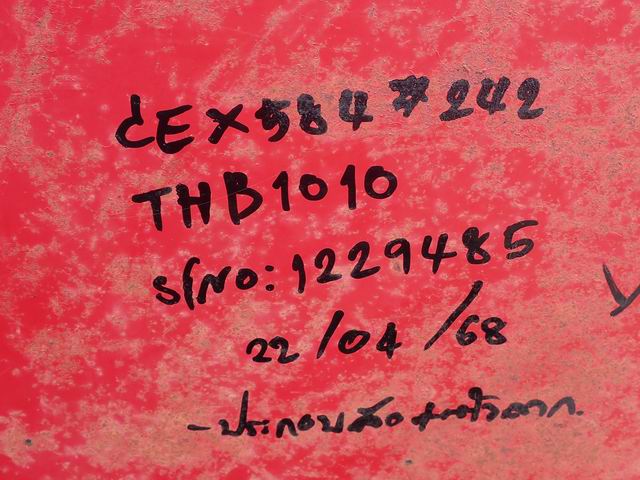 CEX5847242
THB1010
S/NO: 1229485
22/04/68
-ประกอบล้อ